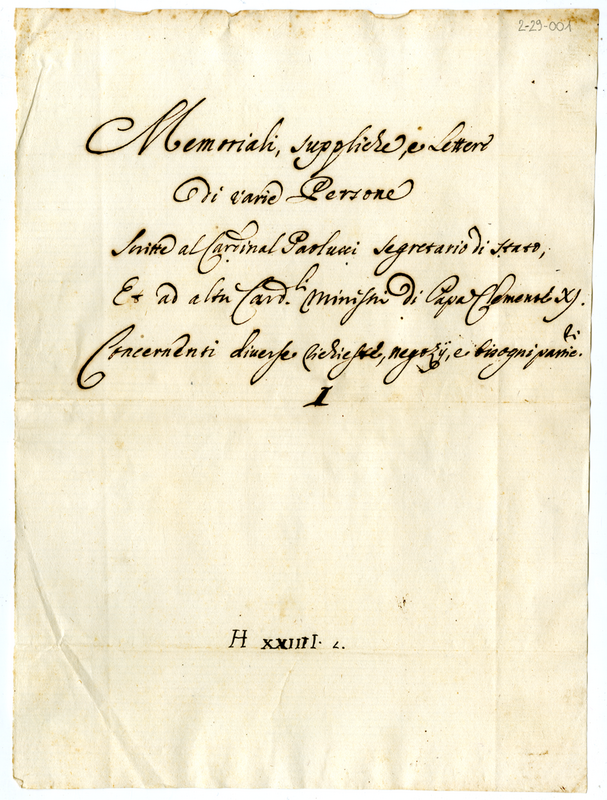 2-29-001
Memoriali, suppliche, e Lettere
di varie Persone
Scritte al Cardinal Paolucci Segretario di Stato,
Et ad altri Card.li Ministri di Papa Clemente XI.
Concernenti diverse richieste, negozij, e bisogni partic.ri
I
H XXIIII. 2.